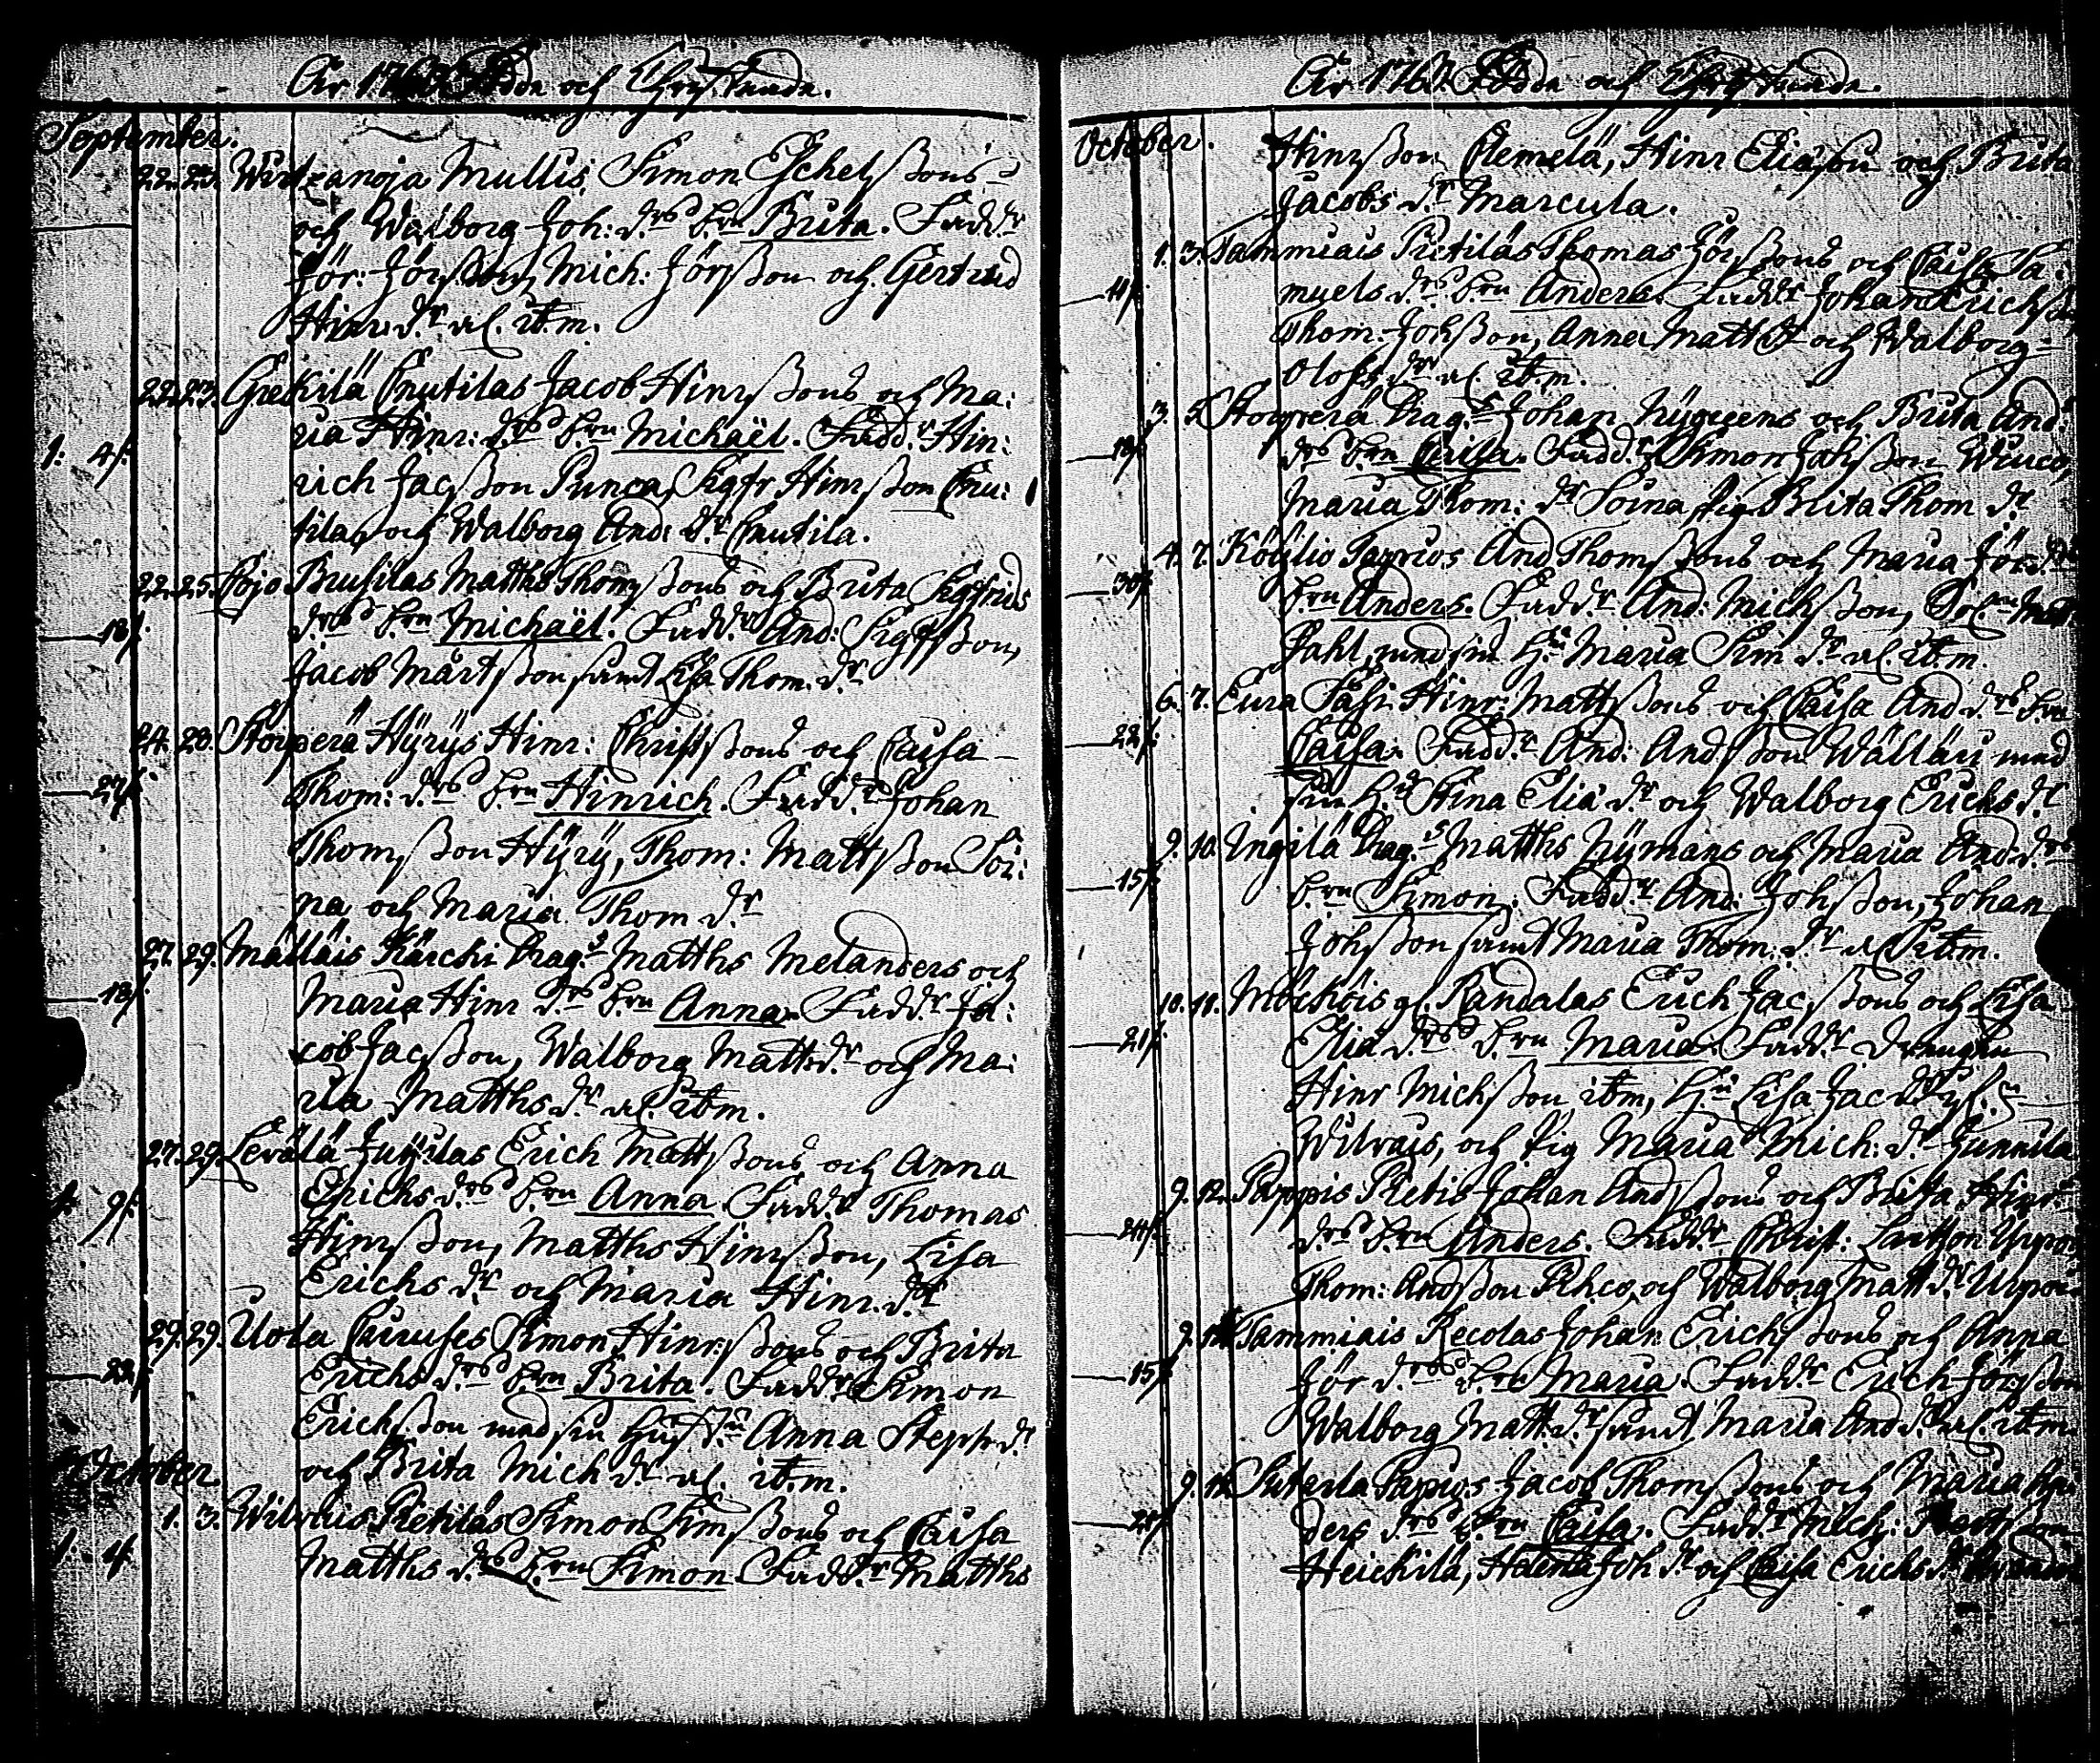 År 176 Födde och Chrystnade.
September.
22. 25. Wirtzanoja Mullis, Simon Eschelssons
och Walborg Joh: drs brn Brita. Fadd:r
Jör: Jörsson, Mich: Jörsson och Gertrud
Hinr: dr al. ibm.
22. 23. Grekilä Cnutilas Jacob Hinrssons och Ma:
ria Hinr: drs brn Michaël. Fadd:r Hin:
1: 4/:
rich Jacsson Punca, Sigfr Hinrsson Cnu:
tila, och Walborg And: dr Cnutila.
22. 25. Pojo Brusilas Matths Thomssons och Brita Sigfrids
18/:
drs brn Michaël. Fadd:r And: Sigfrsson,
Jacob Mårtsson samt Lisa Thom. dr
24. 28. Storperä Hÿrÿs Hinr: Christssons och Caisa
27/:
Thom: drs brn Hinrich. Fadd:r Johan
Thomsson Hÿrÿ, Thom: Mattsson Soi:
na och Maria Thom dr
27. 29. Mälläis Kärcki Drag:s Matths Melanders och
18/:
Maria Hinr drs brn Anna. Fadd:r Ja:
cob Jacsson, Walborg Matts dr och Ma:
ria Matths dr al. ibm.
27. 29. Leväla Erich Mattssons och Anna
1: 9/:
Erichs drs brn Anna. Fadd:r Thomas
Hinrsson, Matths Hinrsson, Lisa
Erichs dr och Maria Hinr. dr
29. 29. Uota Simon Hinr:ssons och Brita
22/:
Erichs drs brn Brita. Fadd:r Simon
Erichsson med sin Hust:u Anna Steph dr
och Brita Mich dr al. ibm.
October.
1. 3. Wilvais Pietiläs Simon Simssons och Caisa
1 4
Matths drs brn Simon Fadd:r Matths
År 176 Födde och Chrystnade.
October.
Hinrsson Clemelä, Hinr Eliæson och Brita
Jacobs dr Marcula.
1. 3. Tammiais Pietiläs Thomas Jörssons och Caisa Sa:
11/:
muels drs brn Anders. Fadd:r Johan Erichsson
Thom: Johsson, Anna Matt dr och Walborg
Olofs dr al. ibm.
3. 5. Storperä Drag:s Johan Nygreens och Brita And:
18/:
drs brn Caisa. Fadd:r Simon Johsson
Maria Thom: dr Soina, Pig. Brita Thom dr
4. 7. Köÿliö Tapuos And Thomssons och Maria Jör: drs
30/:
brn Anders. Fadd:r And: Michsson,
Dahl, med sin H:u Maria Sim dr al. ibm.
6. 7. Eura Pasi Hinr: Mattssons och Caisa And drs brn
22/:
Caisa. Fadd:r And: Andsson Wälläri med
sin H:u Stina Eliæ dr och Walborg Erichs dr
9. 10. Ingilä Drag:s Matths Nÿmans och Maria And: drs
15/:
brn Simon. Fadd:r And: Johsson, Johan
Johsson samt Maria Thom: dr al. ibm.
10. 11. Möckiöis gl. Pandalas Erich Jacssons och Lisa
21/:
Eliæ drs brn Maria. Fadd:r drengen
Hinr Michsson ibm, H:u Lisa Jac dr
Wilvais, och Pig Maria Mich: dr Gunnila
9. 12. Pappis Pietis Johan Andssons och Brita Hinr
24/:
drs brn Anders. Fadd:r Christ: Larsson
Thom: Andsson och Walborg Matt dr
9. 11. Tammiais Recolas Johan Erichssons och Anna
15/:
Jör drs brn Maria. Fadd:r Erich Jörsson
Walborg Matt: dr samt Maria And dr al. ibm.
9. 11. Suterla Jacob Thomssons och Maria An:
25/:
ders drs brn Caisa. Fadd:r Mich:
Heickilä, Helena Joh dr och Caisa Erichs dr